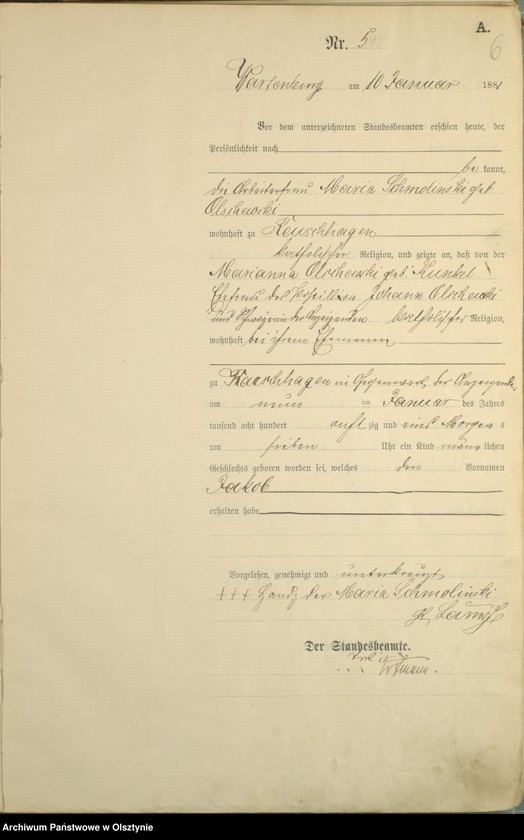 A.
6
Nr. 5
Wartenburg am 10 Januar 1881
Vor dem unterzeichneten Standesbeamten erschien heute, der
Persönlichkeit nach
be kannt,
die Arbeiterfrau Maria Schmolinski geb.
Olschewski
wohnhaft zu Reuschhagen
katholischer Religion, und zeigte an, daß von der
Marianna Olschewski geb. Kunkel
Ehefrau des Johann Olschewski
und Schwägerin der Anzeigenden katholischer Religion,
wohnhaft bei ihrem Ehemanne
zu Reuschhagen in Gegenwart der Anzeigenden
am neun ten Januar des Jahres
tausend acht hundert acht zig und eins Morgens
um sieben Uhr ein Kind männ lichen
Geschlechts geboren worden sei, welches den Vornamen
Jakob
erhalten habe
Vorgelesen, genehmigt und unterkreuzt
+++ Handz der Maria Schmolinski
Der Standesbeamte.
Archiwum Państwowe w Olsztynie